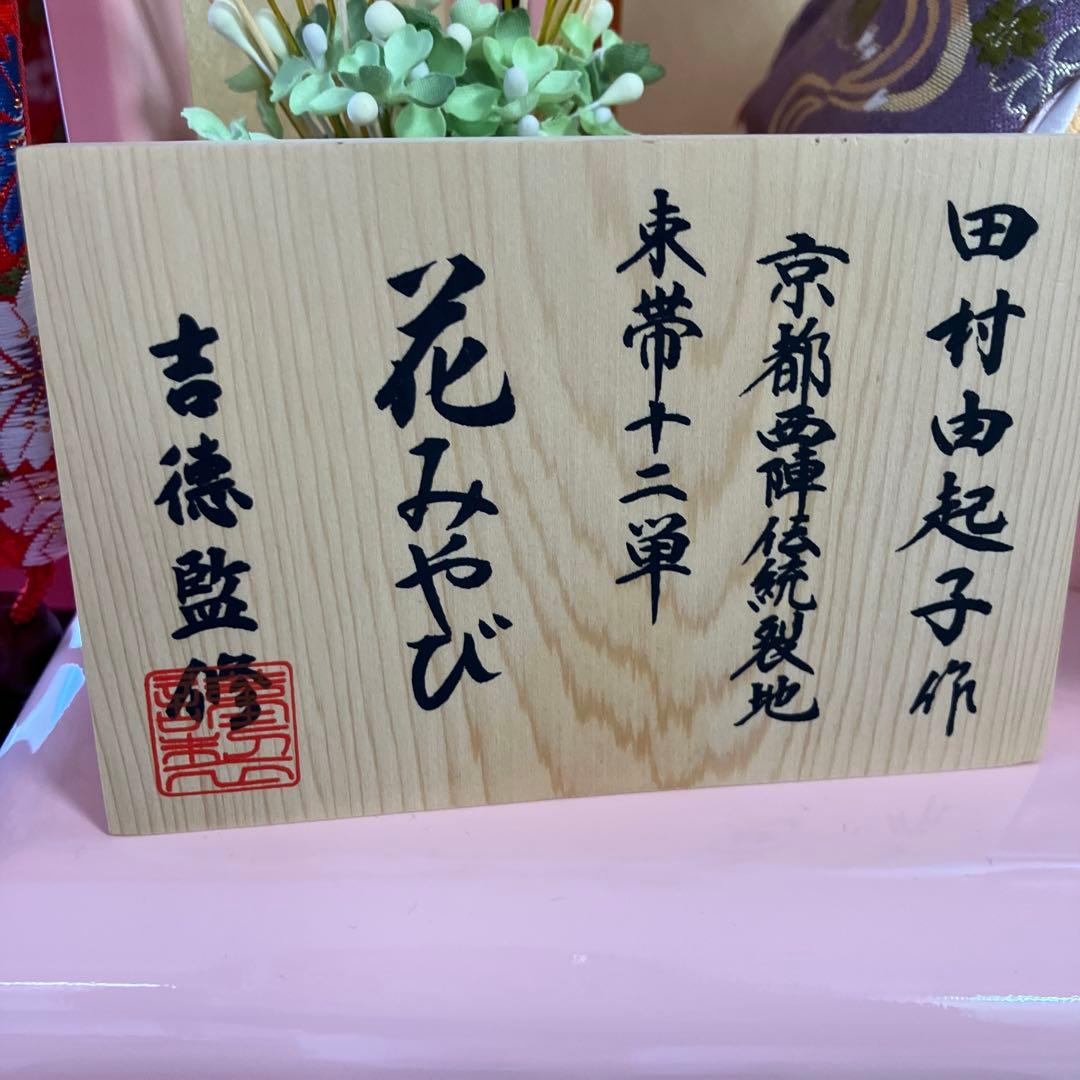 田村由起子作
京都西陣伝統裂地
束帯十二単
花みやび
吉德監修